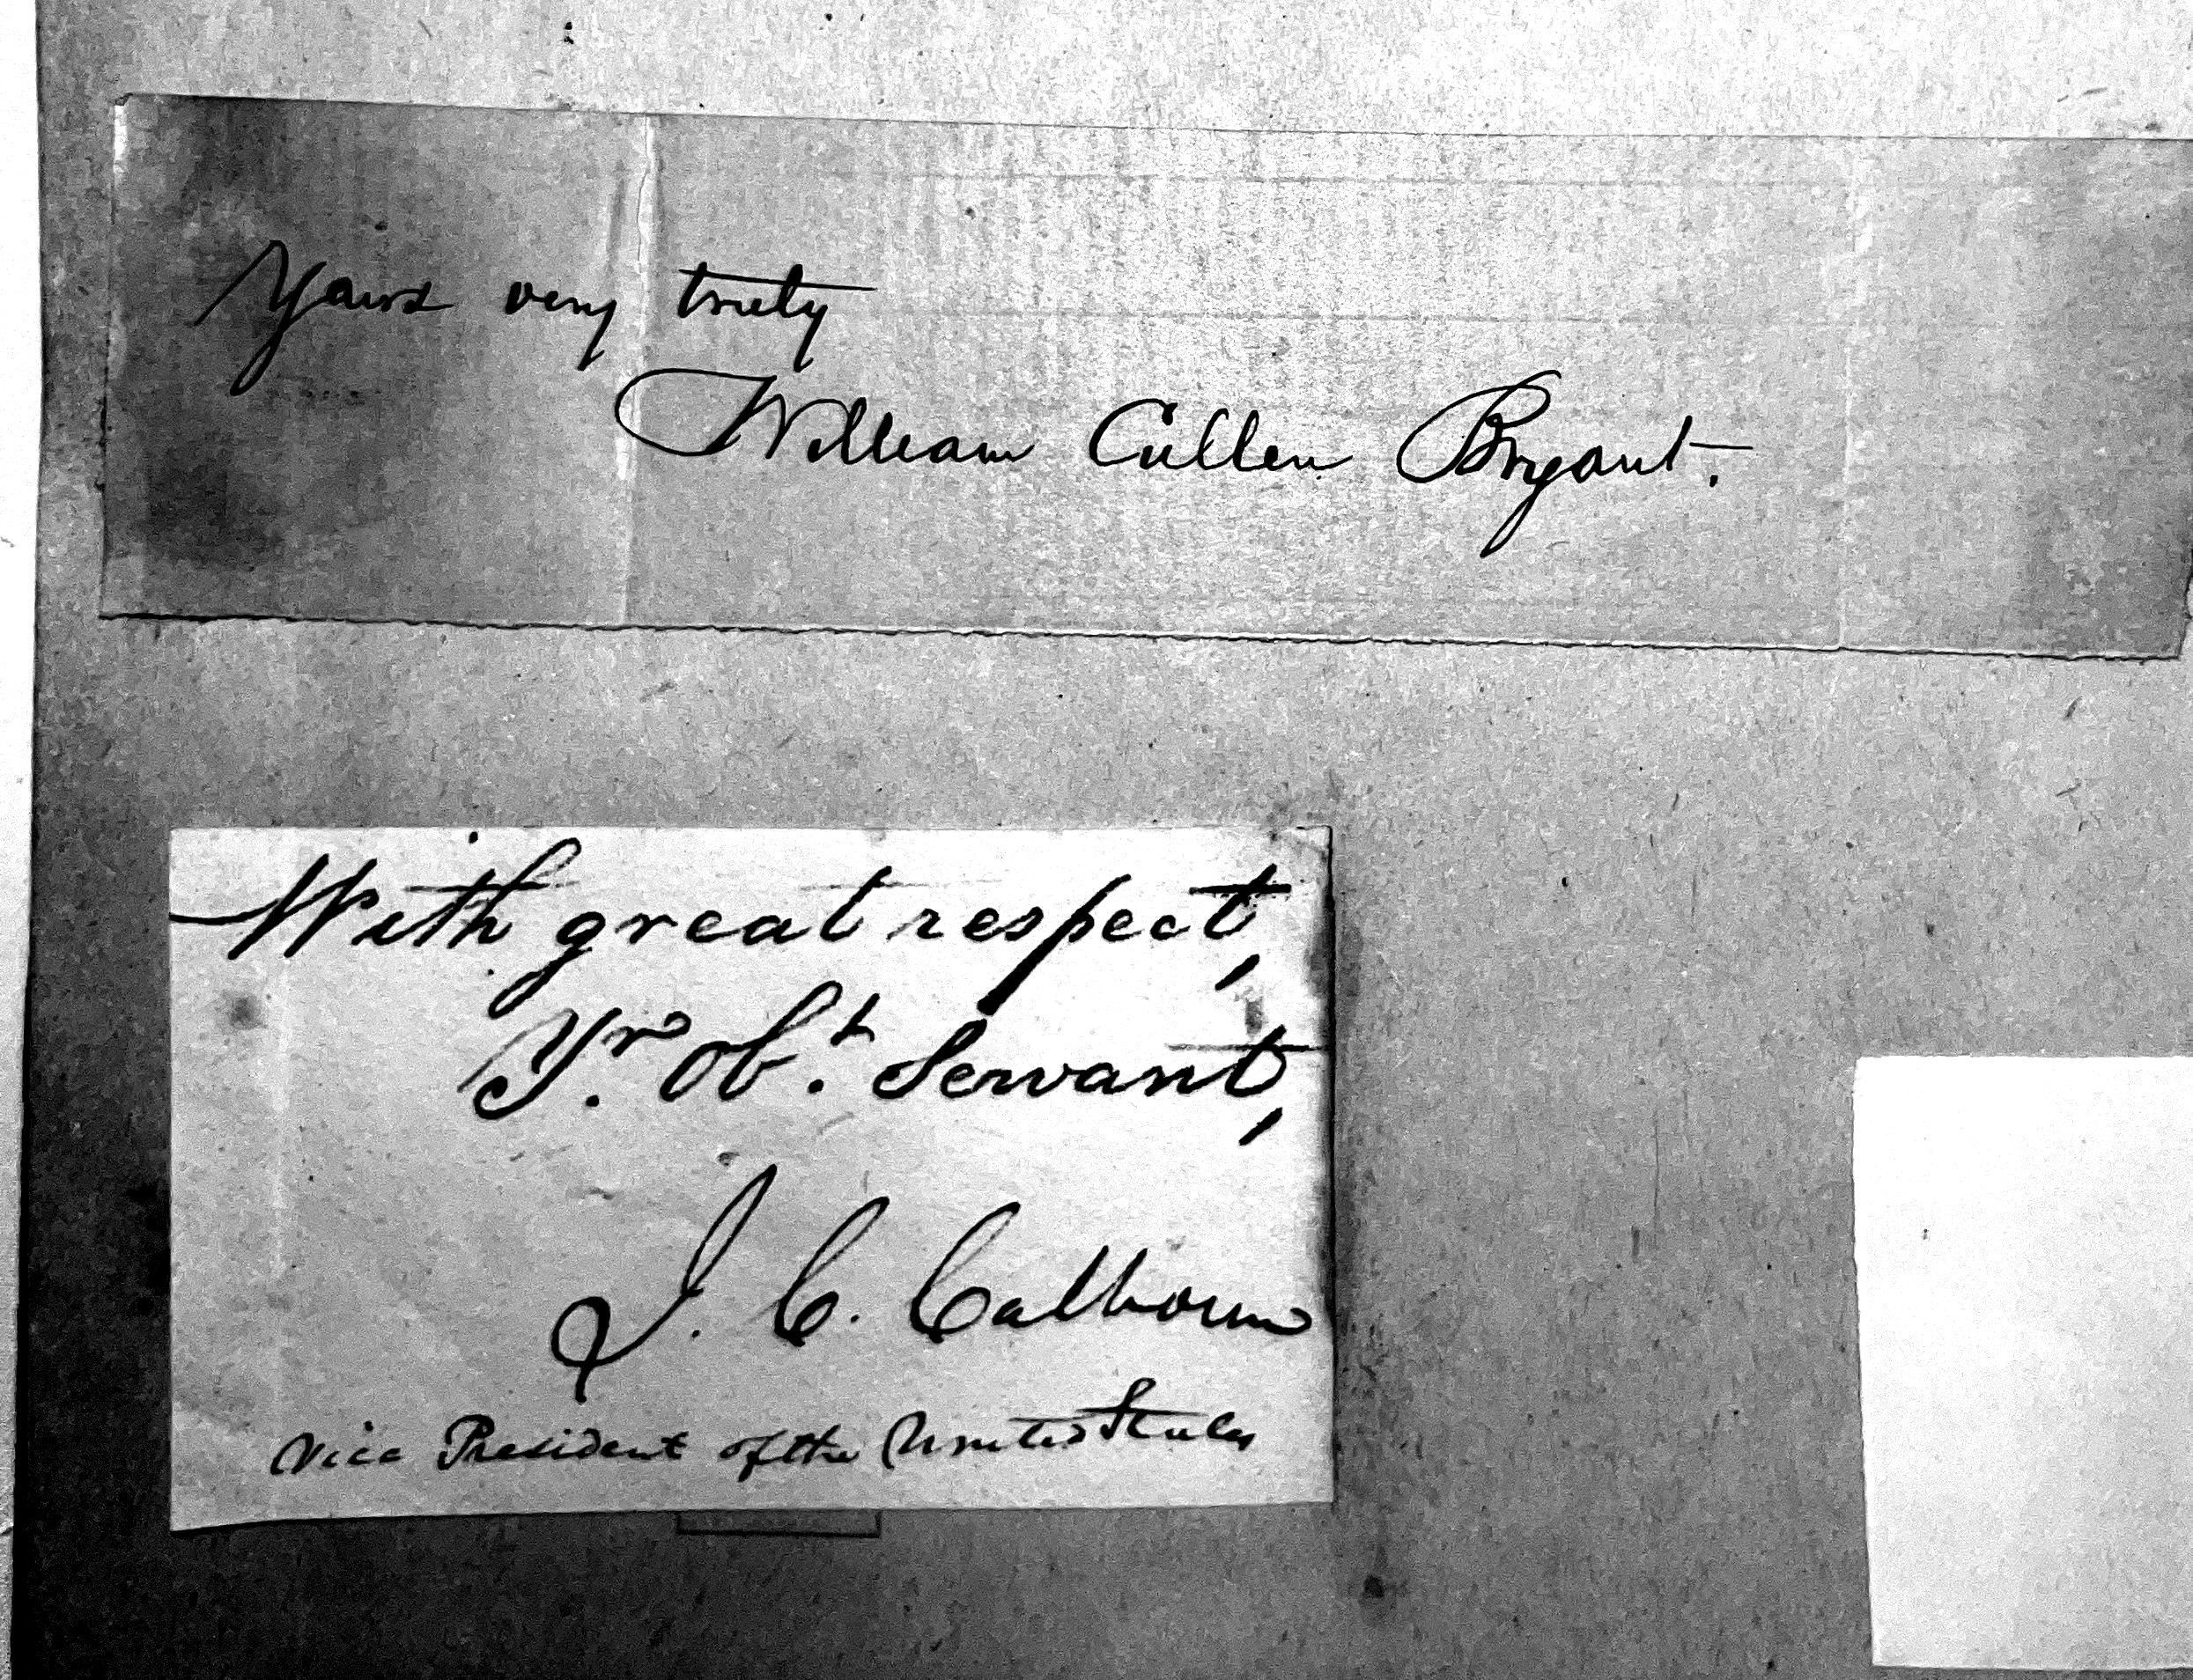 Yours very truly
William Cullen Bryant.
With great respect,
Yr. Obt. Servant,
J. C. Calhoun
Vice President of the United States